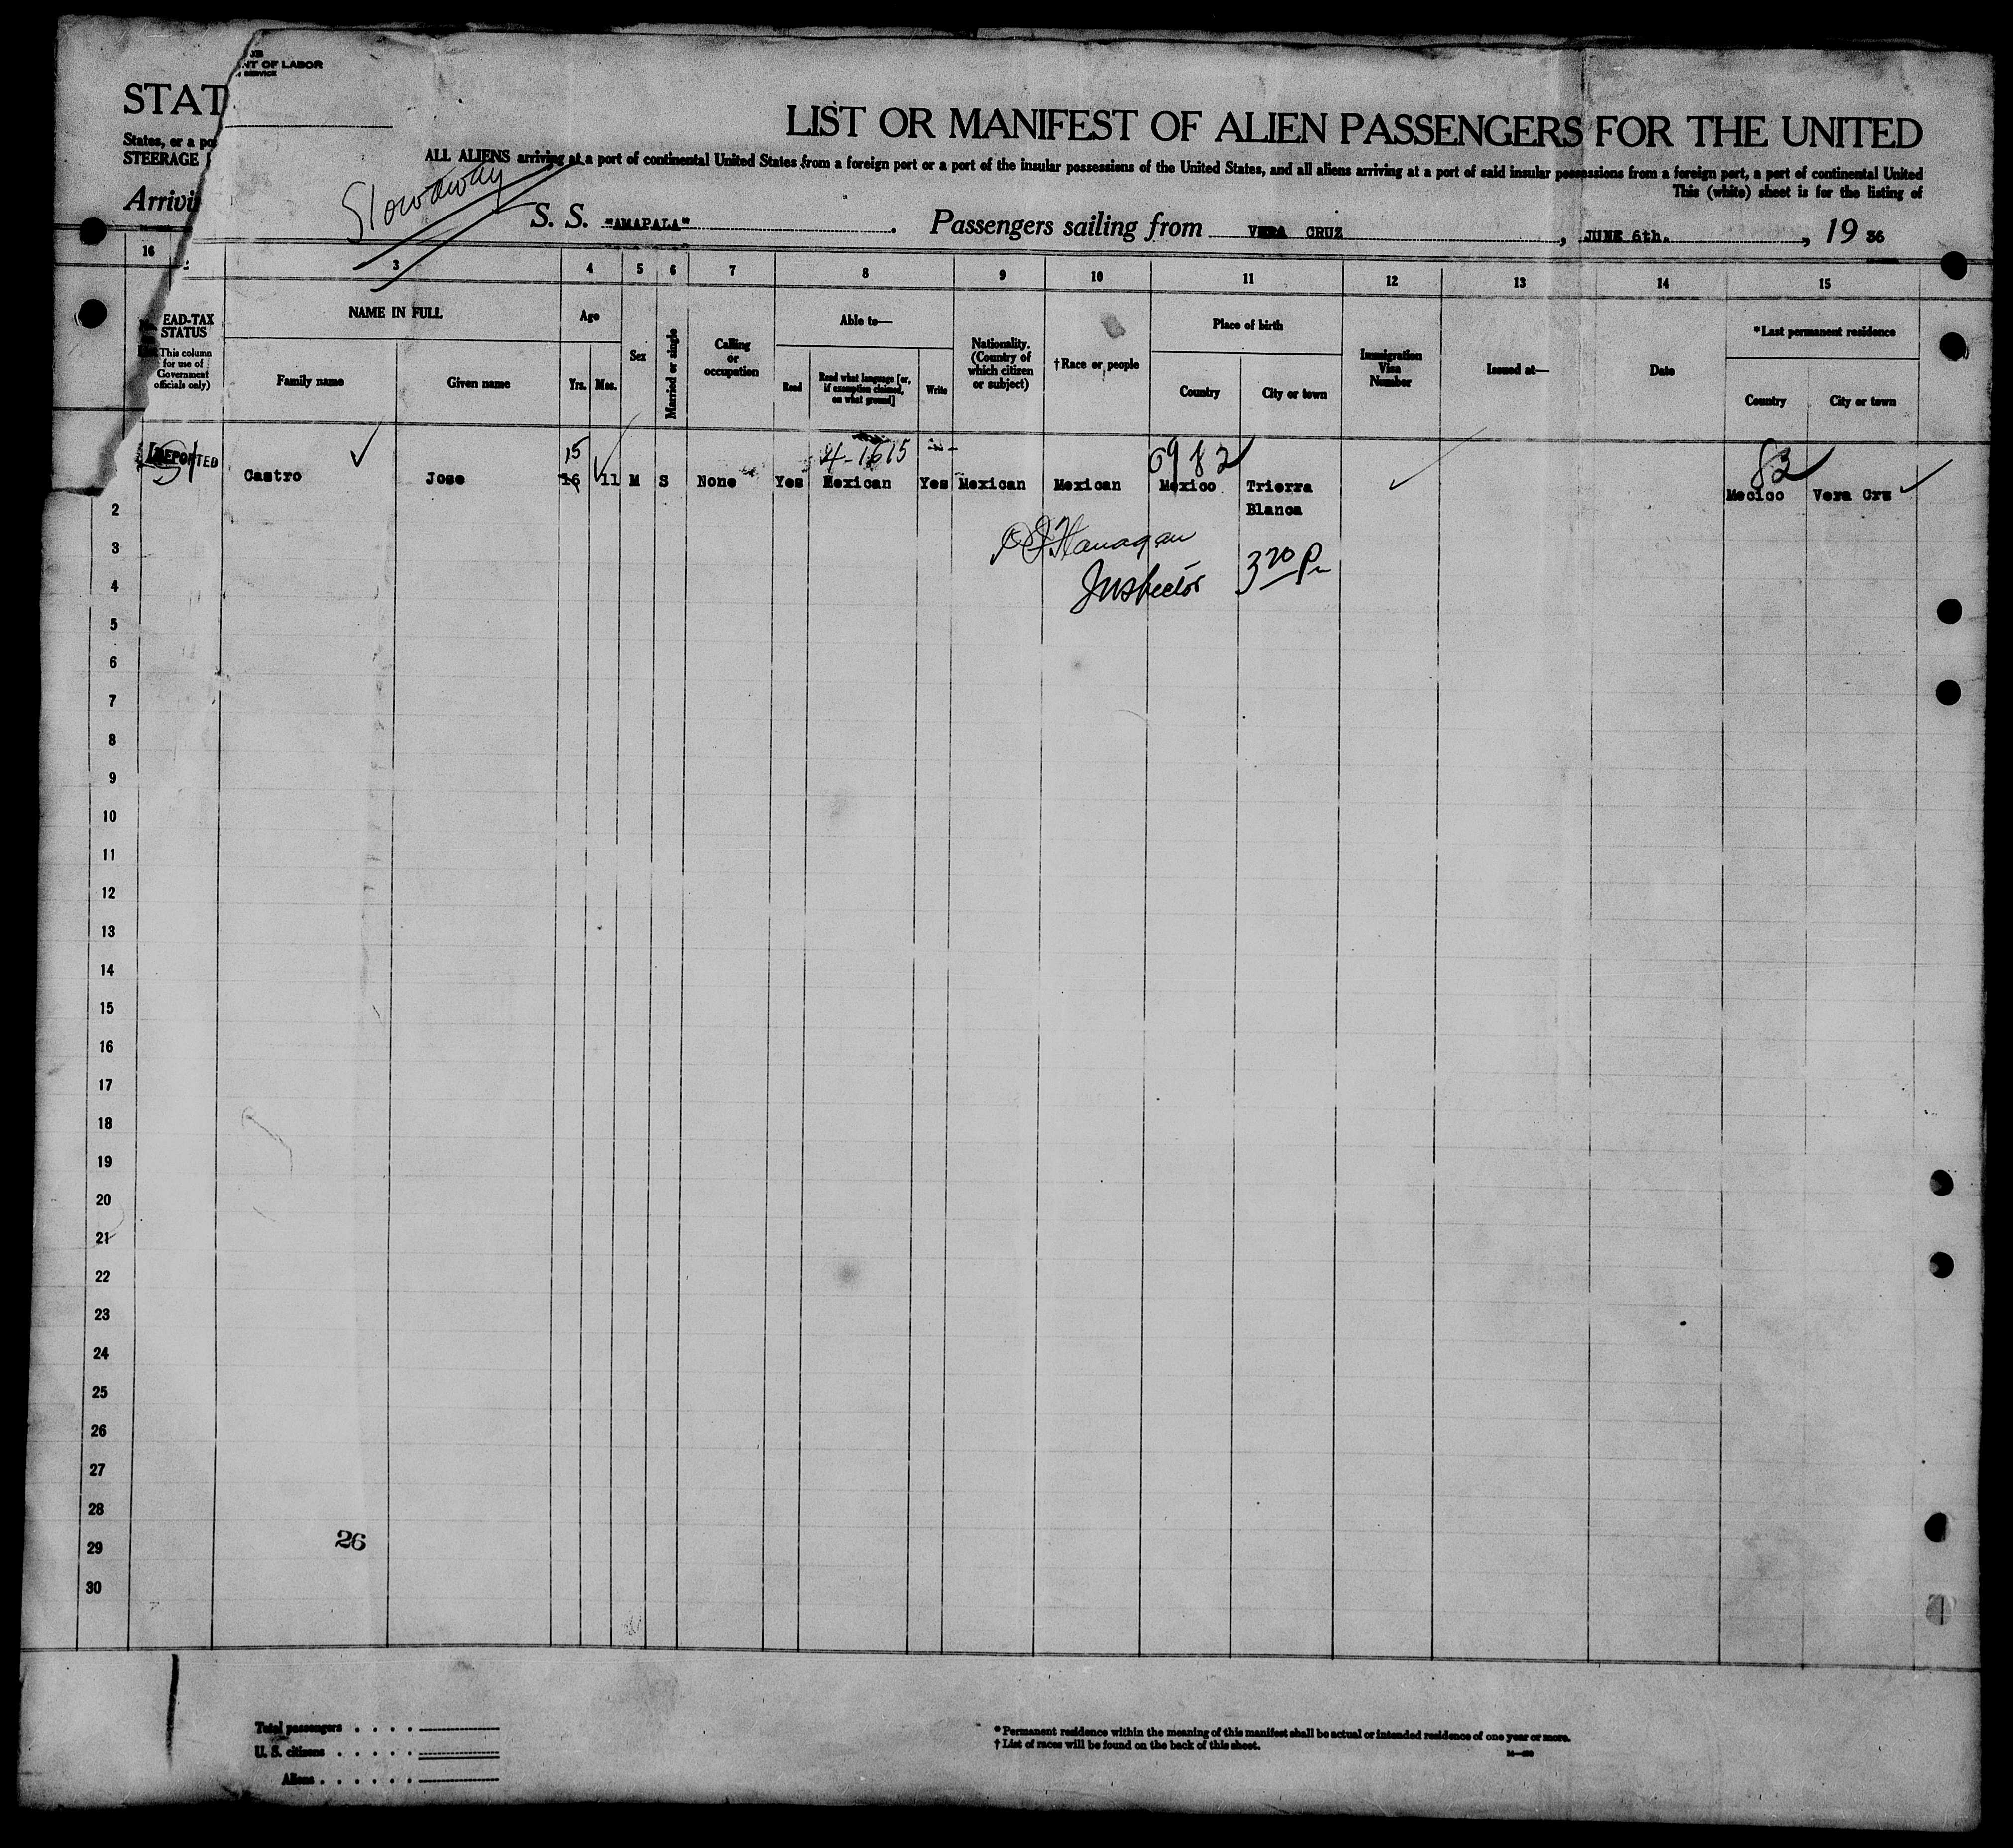 NT OF LABOR
SERVICE
STAT
LIST OR MANIFEST OF ALIEN PASSENGERS FOR THE UNITED
States, or a po
STEERAGE
ALL ALIENS arriving at a port of continental United States from a foreign port or a port of the insular possessions of the United States, and all aliens arriving at a port of said insular possessions from a foreign port, a port of continental United
This (white) sheet is for the listing of
Arrivi
Stowaway
S. S. "AMAPALA". Passengers sailing from VERA CRUZ, JUNE 6th., 19 36
16 3 4 5 6 7 8 9 10 11 12 13 14 15
EAD-TAX STATUS
(This column for use of Government officials only)
NAME IN FULL
Family name
Given name
Age
Yrs. Mos.
Sex
Married or single
Calling or occupation
Able to—
Read
Read what language [or, if exemption claimed, on what ground]
Write
Nationality. (Country of which citizen or subject)
†Race or people
Place of birth
Country
City or town
Immigration Visa Number
Issued at—
Date
*Last permanent residence
Country
City or town
DEPORTED
15 4-1615 6982 82
Castro Jose 16 11 M S None Yes Mexican Yes Mexican Mexican Mexico Trierra Mecico Vera Crz
2 Blanca
3 Flanagan
4 Inspector 3 20 Pm
5
6
7
8
9
10
11
12
13
14
15
16
17
18
19
20
21
22
23
24
25
26
27
28
29 26
30
Total passengers . . . .
U. S. citizens . . . . .
Aliens . . . . . .
* Permanent residence within the meaning of this manifest shall be actual or intended residence of one year or more.
† List of races will be found on the back of this sheet.